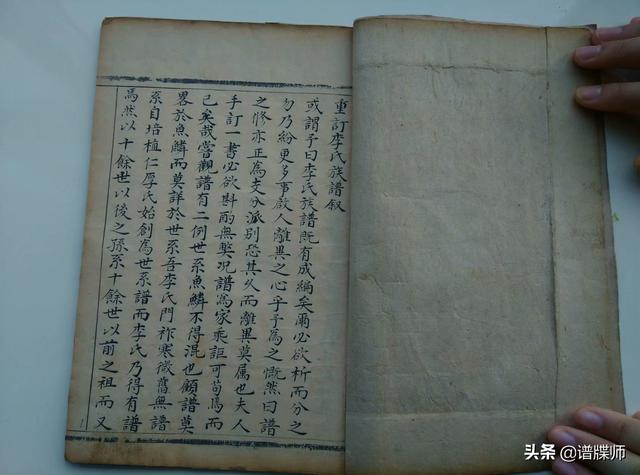 重訂李氏族譜叙
或謂予曰李氏族譜既有成編矣爾必欲析而分之
勿乃紛更多事啟人離異之心乎予為之慨然曰譜
之修亦正為支分派別恐其久而離異莫属也夫人
手訂一書必欲斟酌無獘况譜為家乘詎可苟焉而
已矣哉嘗觀譜有二例世系魚鱗不得混也顧譜莫
畧於魚鱗而莫詳於世系吾李氏門祚寒微舊無譜
系自培植仁厚氏始創為世系譜而李氏乃得有譜
焉然以十餘世以後之孫系十餘世以前之祖而又
头条 @谱牒师